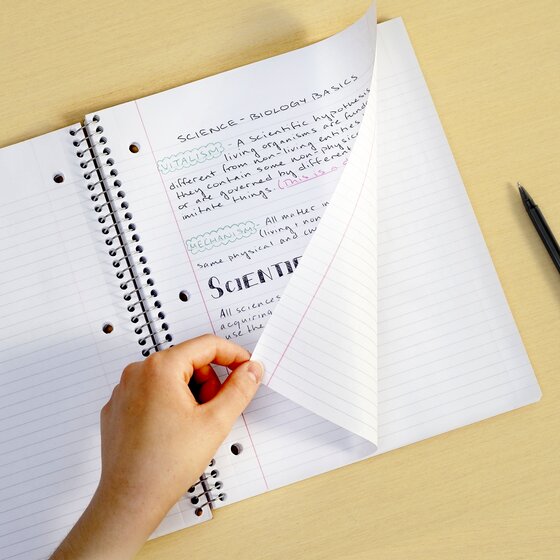 SCIENCE - BIOLOGY BASICS
VITALISM - A scientific hypothesis
living organisms are
different from non-living entities
they contain some non-physical
or are governed by different
imitate things. (This is a
MECHANISM - All matter in
(living, non
same physical and
SCIENTI
All sciences
acquiring
use the